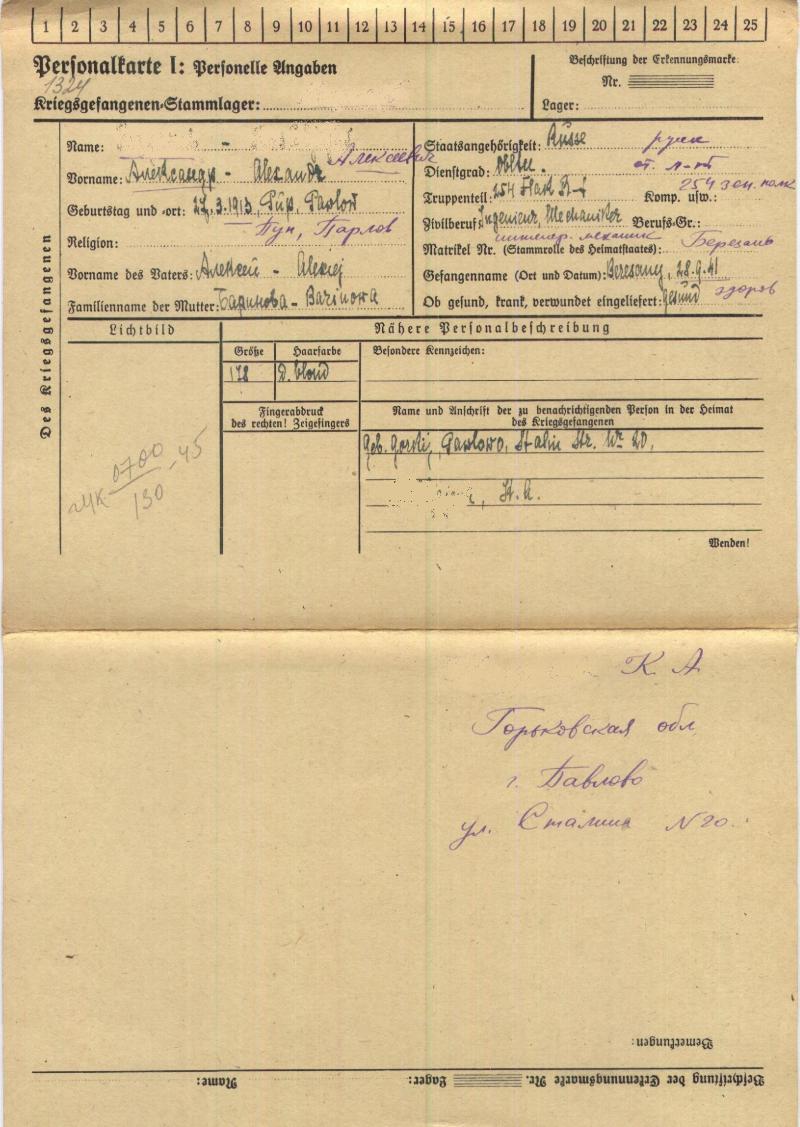 1 2 3 4 5 6 7 8 9 10 11 12 13 14 15 16 17 18 19 20 21 22 23 24 25
Personalkarte I: Personelle Angaben
1324
Kriegsgefangenen-Stammlager:
Beschriftung der Erkennungsmarke
Nr.
Lager:
Des Kriegsgefangenen
Name: -
Алексеевич
Vorname: Александр - Alexandr
Geburtstag und -ort: 27.3.1913, Pawlow
Павлов
Religion:
Vorname des Vaters: Алексей - Alexej
Familienname der Mutter: Баринова - Barinowa
Staatsangehörigkeit: Russe русск
Dienstgrad: Obltn. ст. л-нт
Truppenteil: 254 Flak R-t Komp. usw.: 254 зен. полк
Zivilberuf: Ingenieur, Mechaniker Berufs-Gr.:
инженер. механик
Matrikel Nr. (Stammrolle des Heimatstaates): Березань
Gefangenname (Ort und Datum): Beresany, 28.9.41
Ob gesund, krank, verwundet eingeliefert: gesund здоров
Lichtbild
Nähere Personalbeschreibung
Größe Haarfarbe Besondere Kennzeichen:
178 D. blond
Fingerabdruck
des rechten! Zeigefingers
Name und Anschrift der zu benachrichtigenden Person in der Heimat
des Kriegsgefangenen
Geb. Gorkij, Pawlowo, Stalin Str. № 20,
0700
130 -45
Wenden!
К. А.
Горьковская обл.
г. Павлово
ул. Сталина N 20.
Bemerkungen:
Beschriftung der Erkennungsmarke Nr. Lager: Name: